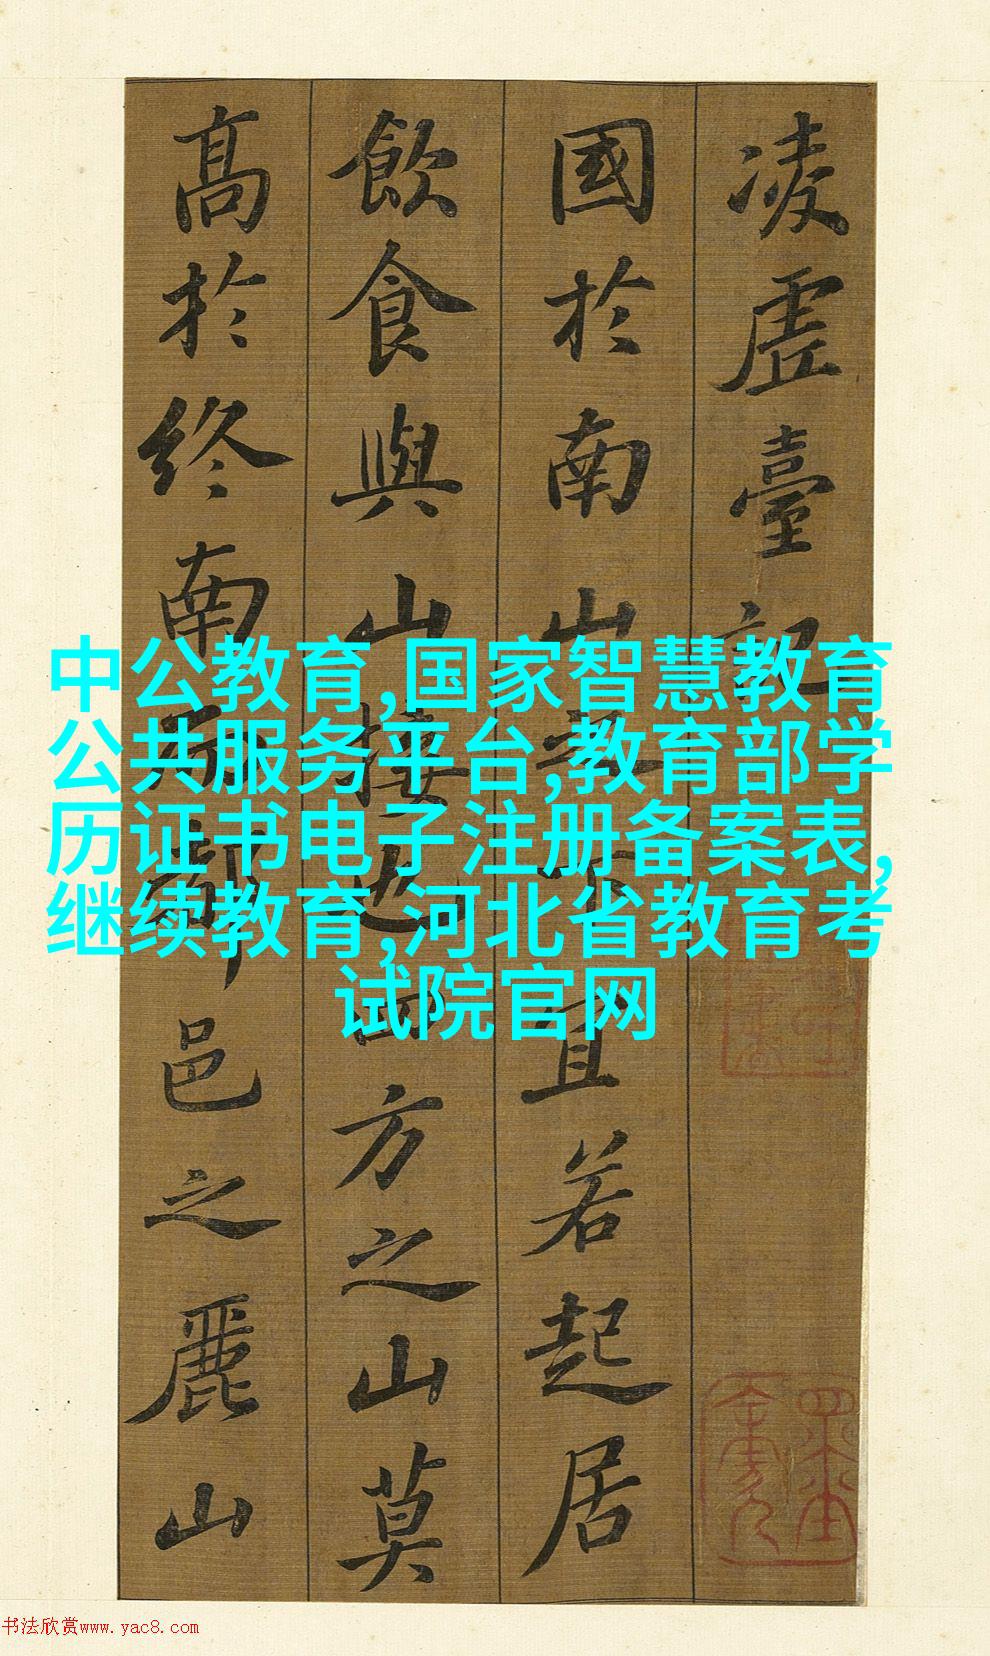 凌虛臺記
國於南山下宜若起居
飲食與山接也四方之山莫
高於終南而都邑之麗山
中公教育,国家智慧教育
公共服务平台,教育部学
历证书电子注册备案表,
继续教育,河北省教育考
试院官网
书法欣赏www.yac8.com